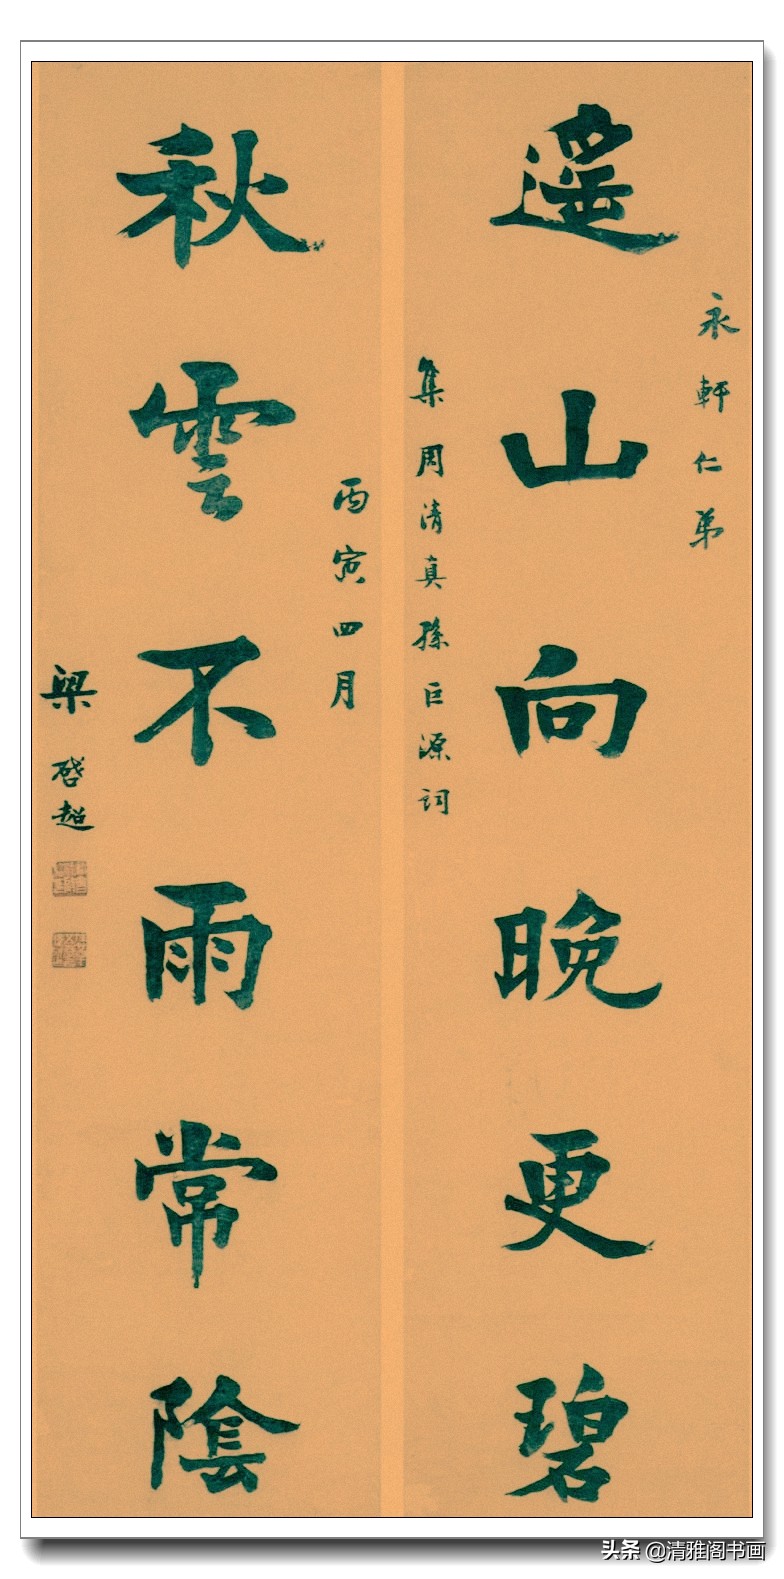 永軒仁弟
遙山向晚更碧
集周清真孫巨源詞
丙寅四月
秋雲不雨常陰
梁啓超
头条 @清雅阁书画